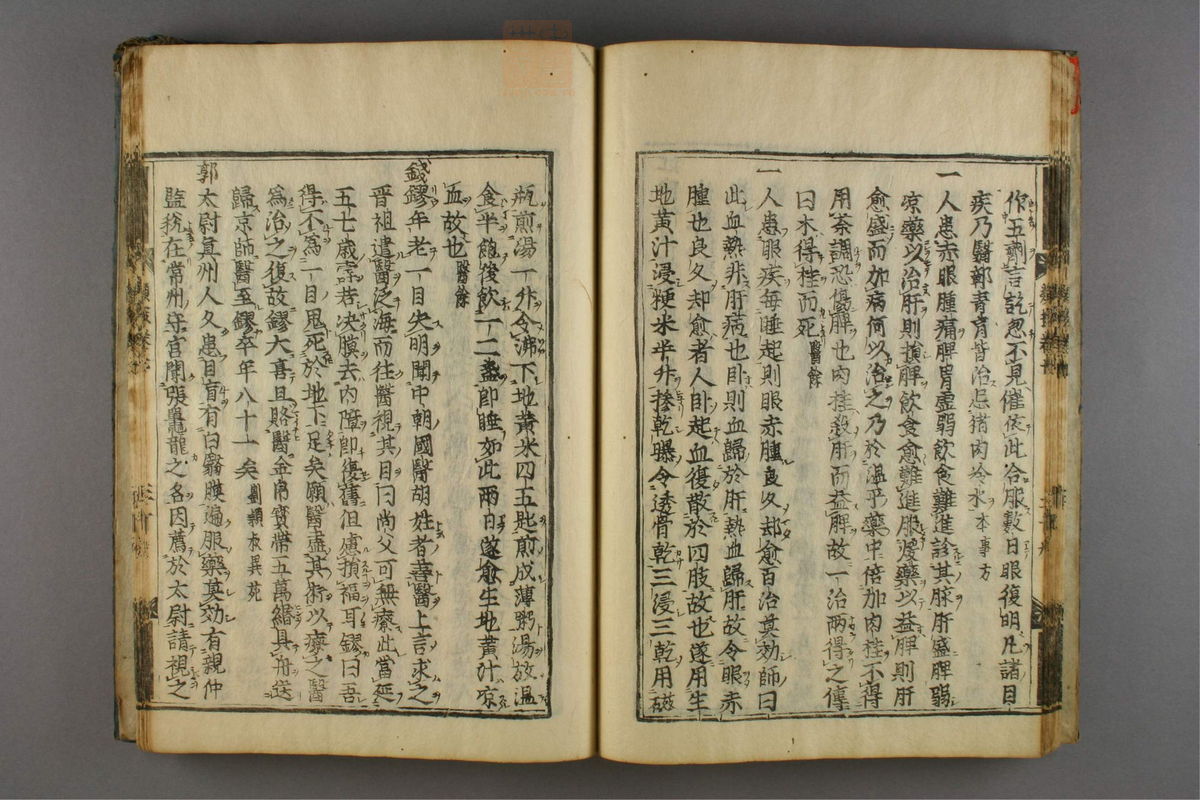 作五劑言訖忽不見催依此合服數日眼復明凡諸目
疾乃醫郭青盲皆治忌猪肉冷水本事方
一人患赤眼腫痛脾胃虚弱飲食難進診其脉肝盛脾弱
凉藥以治肝則損脾飲食愈難進服暖藥以益脾則肝
愈盛而加病何以治之乃於温平藥中倍加肉桂不得
用茶調恐傷脾也肉桂殺肝而益脾故一治兩得之傳
曰木得桂而死醫餘
一人患眼疾毎睡起則眼赤腫良久却愈百治莫効師曰
此血熱非肝病也卧則血歸於肝熱血歸肝故令眼赤
腫也良久却愈者人卧起血復散於四肢故也遂用生
地黄汁浸粳米半升摻乾曝令透骨乾三浸三乾用磁
瓶煎湯一升令沸下地黄米四五匙煎成薄粥湯放温
食半飽後飲一二盞即睡如此兩日遂愈生地黄汁凉
血故也醫餘
錢鏐年老一目失明聞中朝國醫胡姓者善醫上言求之
晋祖遣醫泛海而往醫視其目曰尚父可無療此當延
五七歳命若决膜去内障即復舊但慮損福耳鏐曰吾
得不爲一目鬼死於地下足矣願醫盡其術以療之醫
爲治之復故鏐大喜且賂醫金帛寳帶五萬緡具舟送
歸京師醫至鏐卒年八十一矣劉頴衣異苑
郭太尉真州人久患目盲有白翳膜遍服藥莫効有親仲
監税在常州守官聞張鼉龍之名因薦於太尉請視之